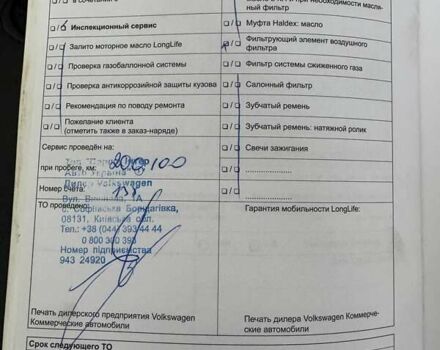 в сочетании с
Инспекционный сервис
Залито моторное масло LongLife
Проверка газобаллонной системы
Проверка антикоррозийной защиты кузова
Рекомендация по поводу ремонта
Пожелание клиента
(отметить также в заказ-наряде)
и при необходимости масля-
ный фильтр
Муфта Haldex: масло
Фильтрующий элемент воздушного
фильтра
Фильтр системы сжиженного газа
Салонный фильтр
Зубчатый ремень
Зубчатый ремень: натяжной ролик
Свечи зажигания
Сервис проведён на:
при пробеге, км: 200 100
Номер счёта:
ТО проведено:
Дилер Volkswagen
с. Софіївська Борщагівка,
08131, Київська обл.
Тел.: +38 (044) 393 44 44
0 800 300 393
Номер підприємства
943 24920
Гарантия мобильности LongLife:
Печать дилерского предприятия Volkswagen
Коммерческие автомобили
Печать дилера Volkswagen Коммерче-
ские автомобили
Срок следующего ТО